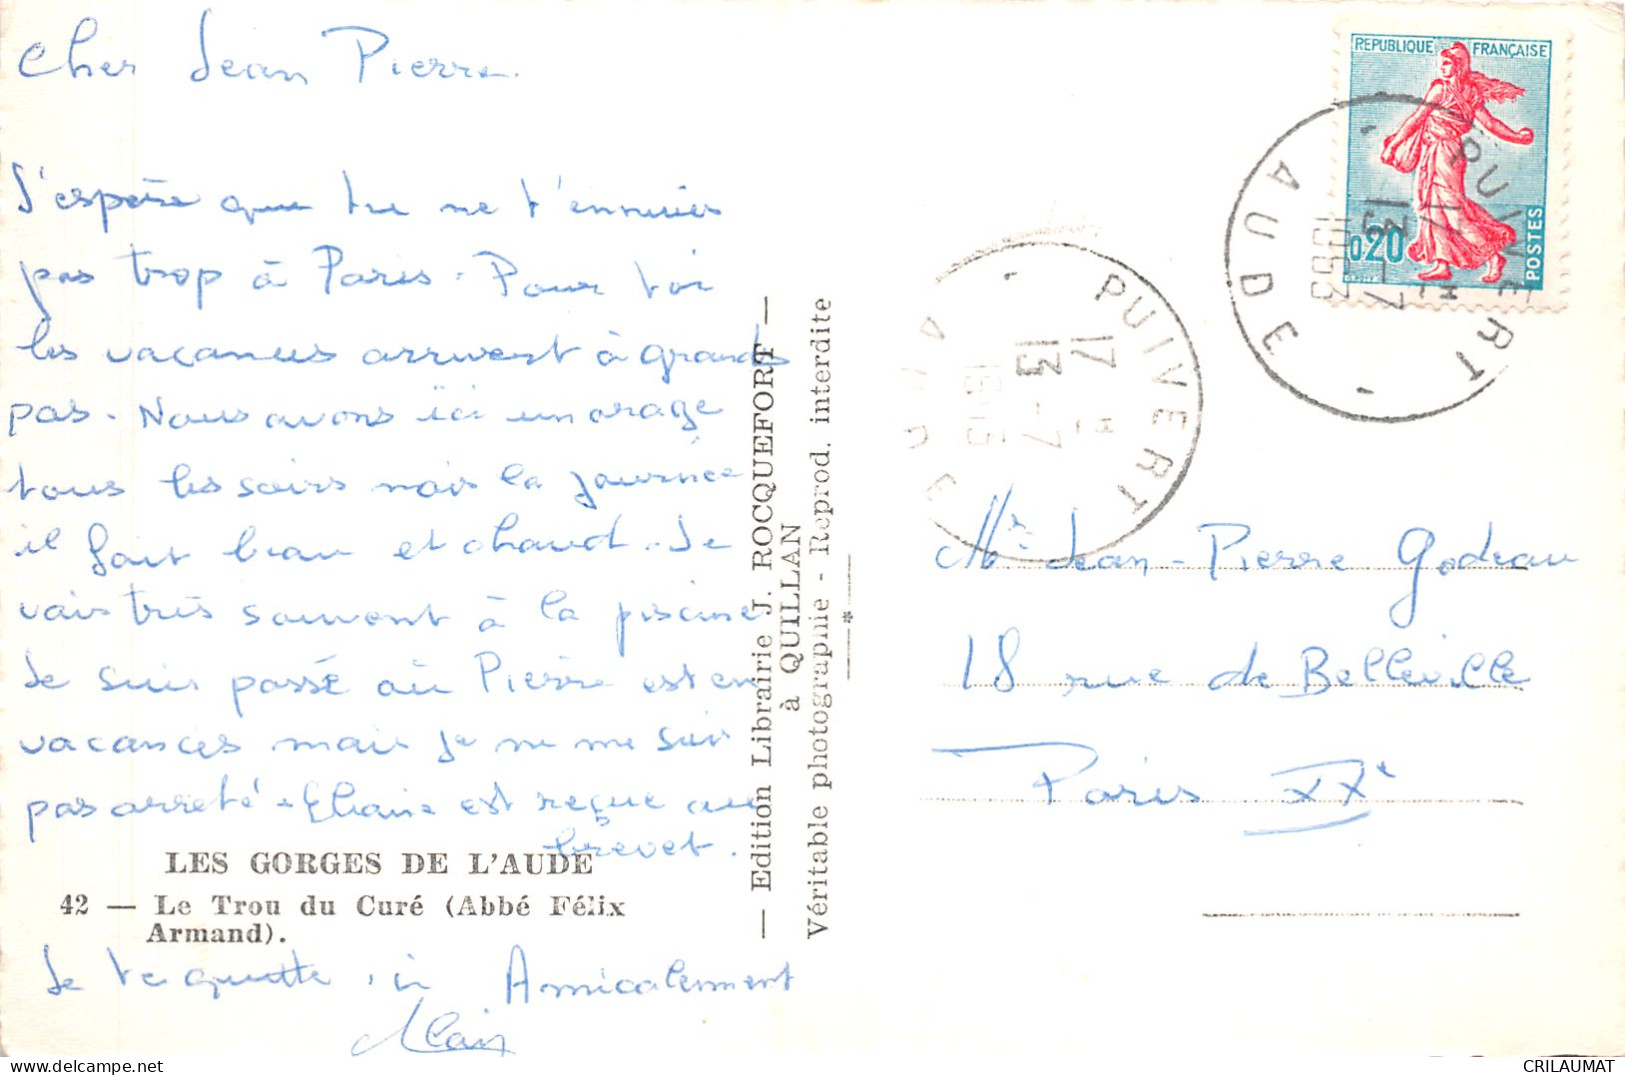 Cher Jean Pierre.
J'espère que tu ne t'ennuies
pas trop à Paris. Pour toi
les vacances arrivent à grands
pas. Nous avons ici un orage
tous les soirs mais la journée
il fait beau et chaud. Je
vais très souvent à la piscine
Je suis passé où Pierre est en
vacances mais je ne me suis
pas arreté. Eliane est reçue au
brevet.
LES GORGES DE L'AUDE
42 — Le Trou du Curé (Abbé Félix
Armand).
Je te quitte ici Amicalement
Alain
— Edition Librairie J. ROCQUEFORT —
à QUILLAN
Véritable photographie - Reprod. interdite
REPUBLIQUE FRANÇAISE
0,20
POSTES
PUIVERT
17 H
13 - 7
1963
AUDE
PUIVERT
17 H
13 - 7
AUDE
Mr Jean-Pierre Godeau
18 rue de Belleville
Paris XXe
CRILAUMAT